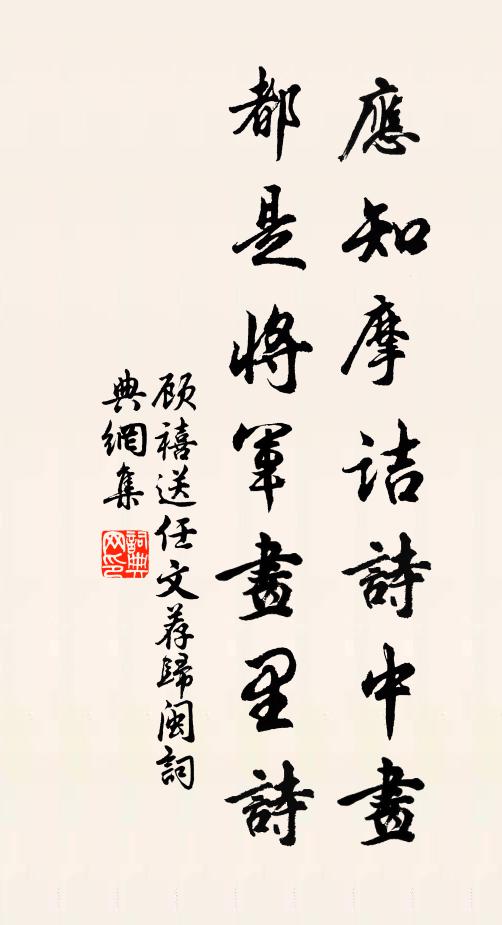 應知摩詰詩中畫
都是將軍畫里詩
顾禧送任文荐歸閩詞
典網集
詞典
网印